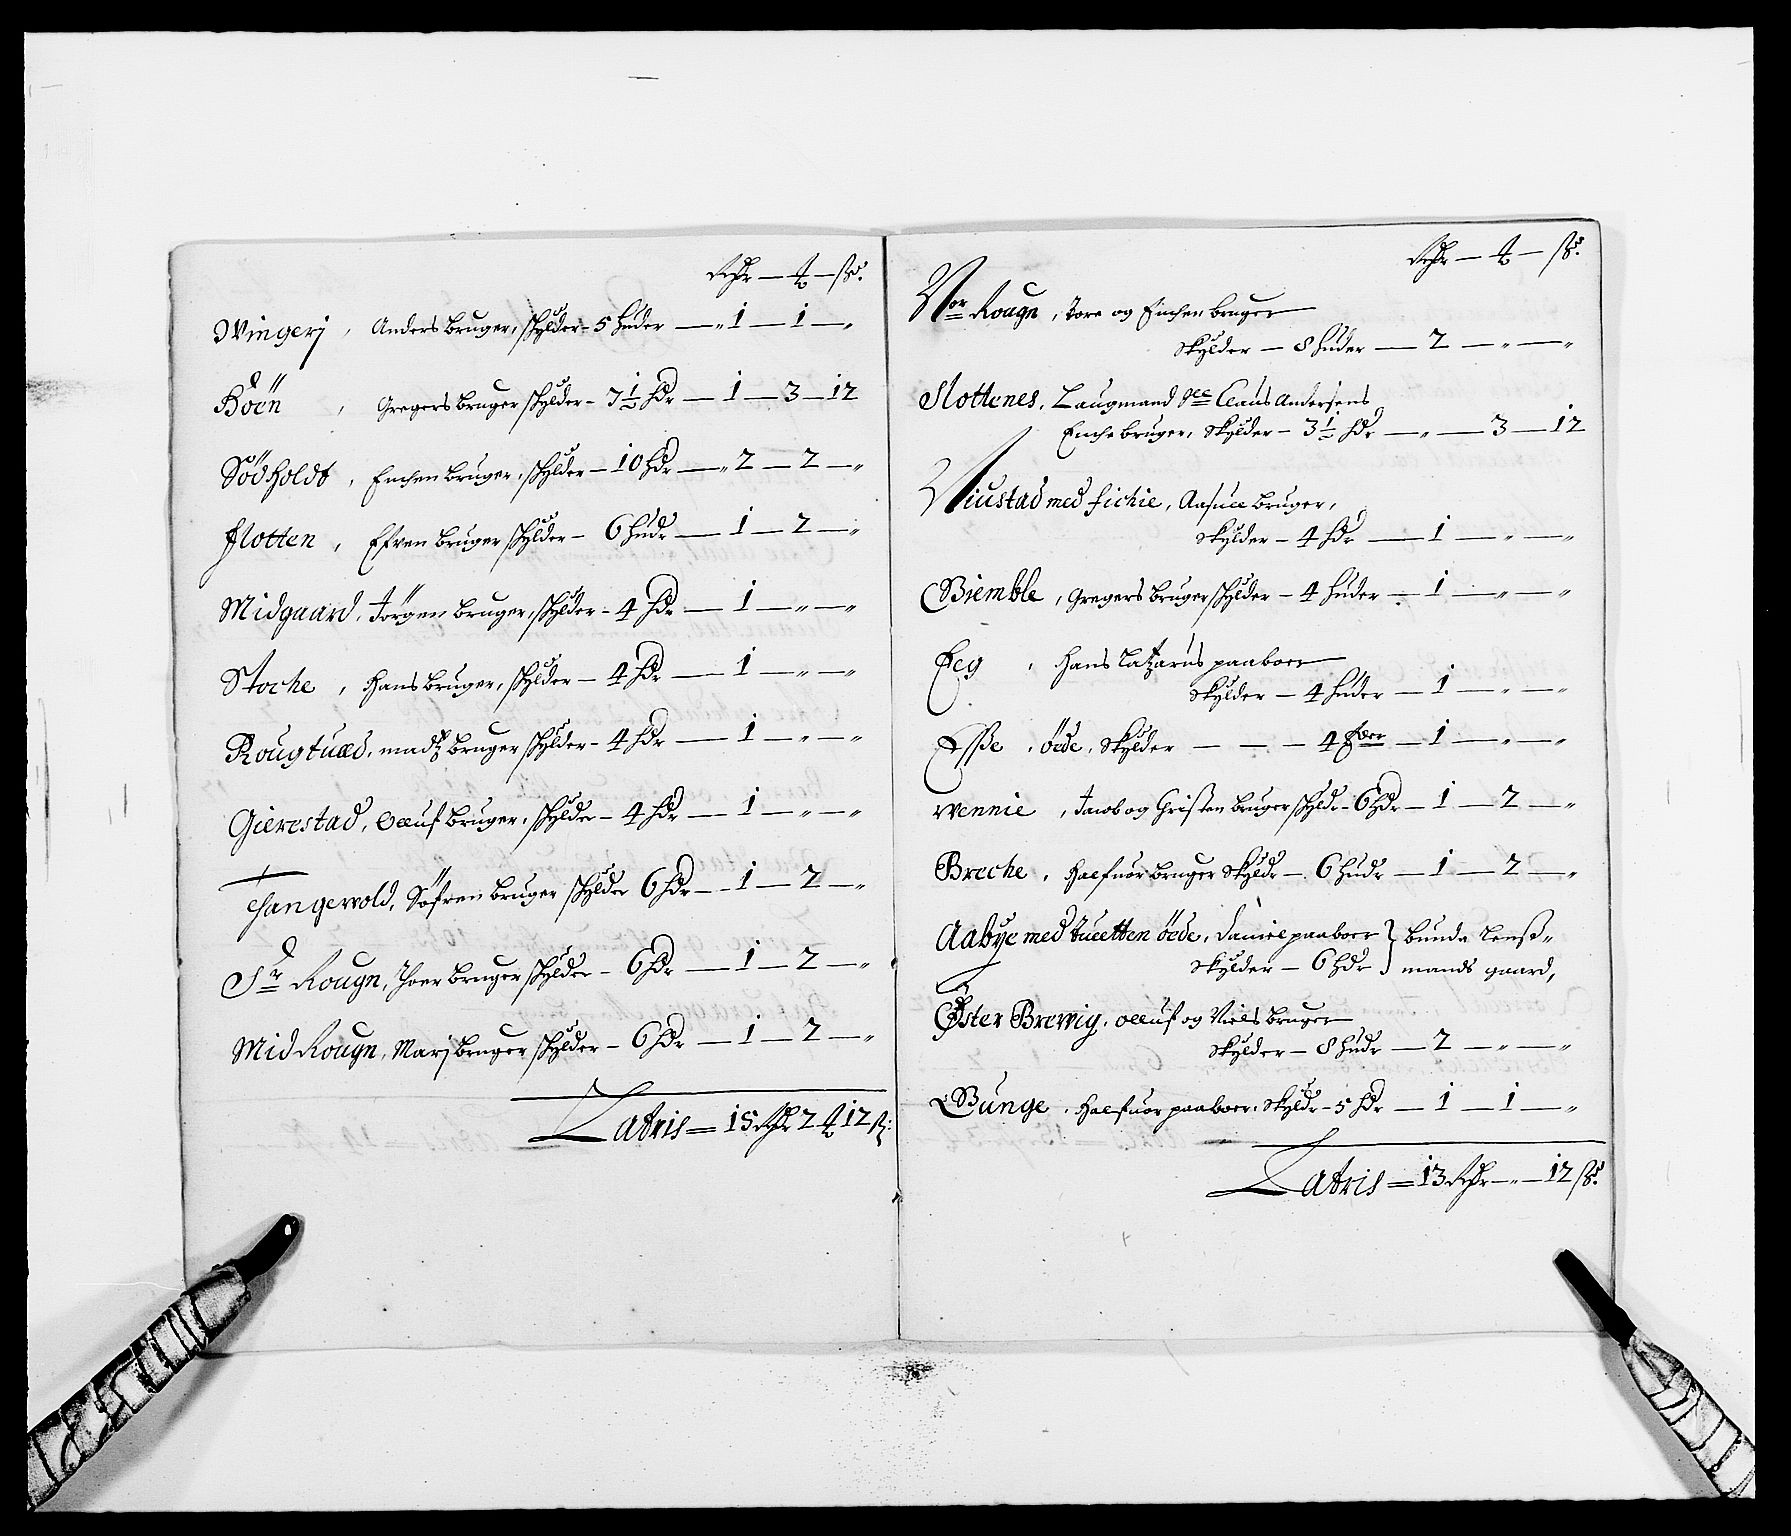 Rdr — ₰ — ßr.
Wingerj, Anders bruger, skylder – 5 huder — „ 1 — 1 — „
Böen, Gregers bruger skylder – 7½ hdr — 1 — 3 — 12
Södholdt, Enchen bruger, skylder – 10 hdr — „ 2 — 2 — „
flotten, Efren bruger skylder – 6 hudr — 1 — 2 — „
Midgaard, Jörgen bruger, skylder – 4 hdr — 1 — „ — „
Stoche, Hans bruger, skylder – 4 hdr — 1 — „ — „
Rougtued, madtz bruger skylder – 4 hdr — 1 — „ — „
Gierestad, Oluf bruger, skylder – 4 hdr — 1 — „ — „
Hangewold, Söfren bruger skylder 6 hdr — 1 — 2 — „
Sr Rougn, Joen bruger skylder – 6 hdr — 1 — 2 — „
Mid Rougn, Marj bruger skylder – 6 hdr — 1 — 2 — „
Latris = 15 Rdr 2 ₰ 12 ß:
Rdr — ₰ — ßr.
Nor Rougn, Tore og Enchen bruger
skylder — 8 huder — 2 — „ — „
Slottenes, Laugmand Sl Claus Andersens
Enche bruger, skylder – 3½ hdr — „ — 3 — 12
Niustad med fichie, Aasuld bruger,
skylder – 4 hdr — 1 — „ — „
Biemble, Gregers bruger skylder – 4 huder — 1 — „ — „
Eeg, Hans Latzarus paaboer
skylder — 4 huder — 1 — „ — „
Esße, öede, skylder — — – 4 — 1 — „ — „
Wennie, Jacob og Christen bruger skyldr – 6 hdr — 1 — 2 — „
Breche, Halfuor bruger skyldr — 6 hudr — 1 — 2 — „
Aabye med tuetten öede, Daniel paaboer } bunda lenß„
skylder — 6 hdr } mands gaard,
Øster Brewig, Oluf og Niels bruger
skylder – 8 hudr — 2 — „ — „
Bunge, Halfuor paaboer, skyldr – 5 hdr — 1 — 1 — „
Latris = 13 Rdr — „ — 12 ßr.